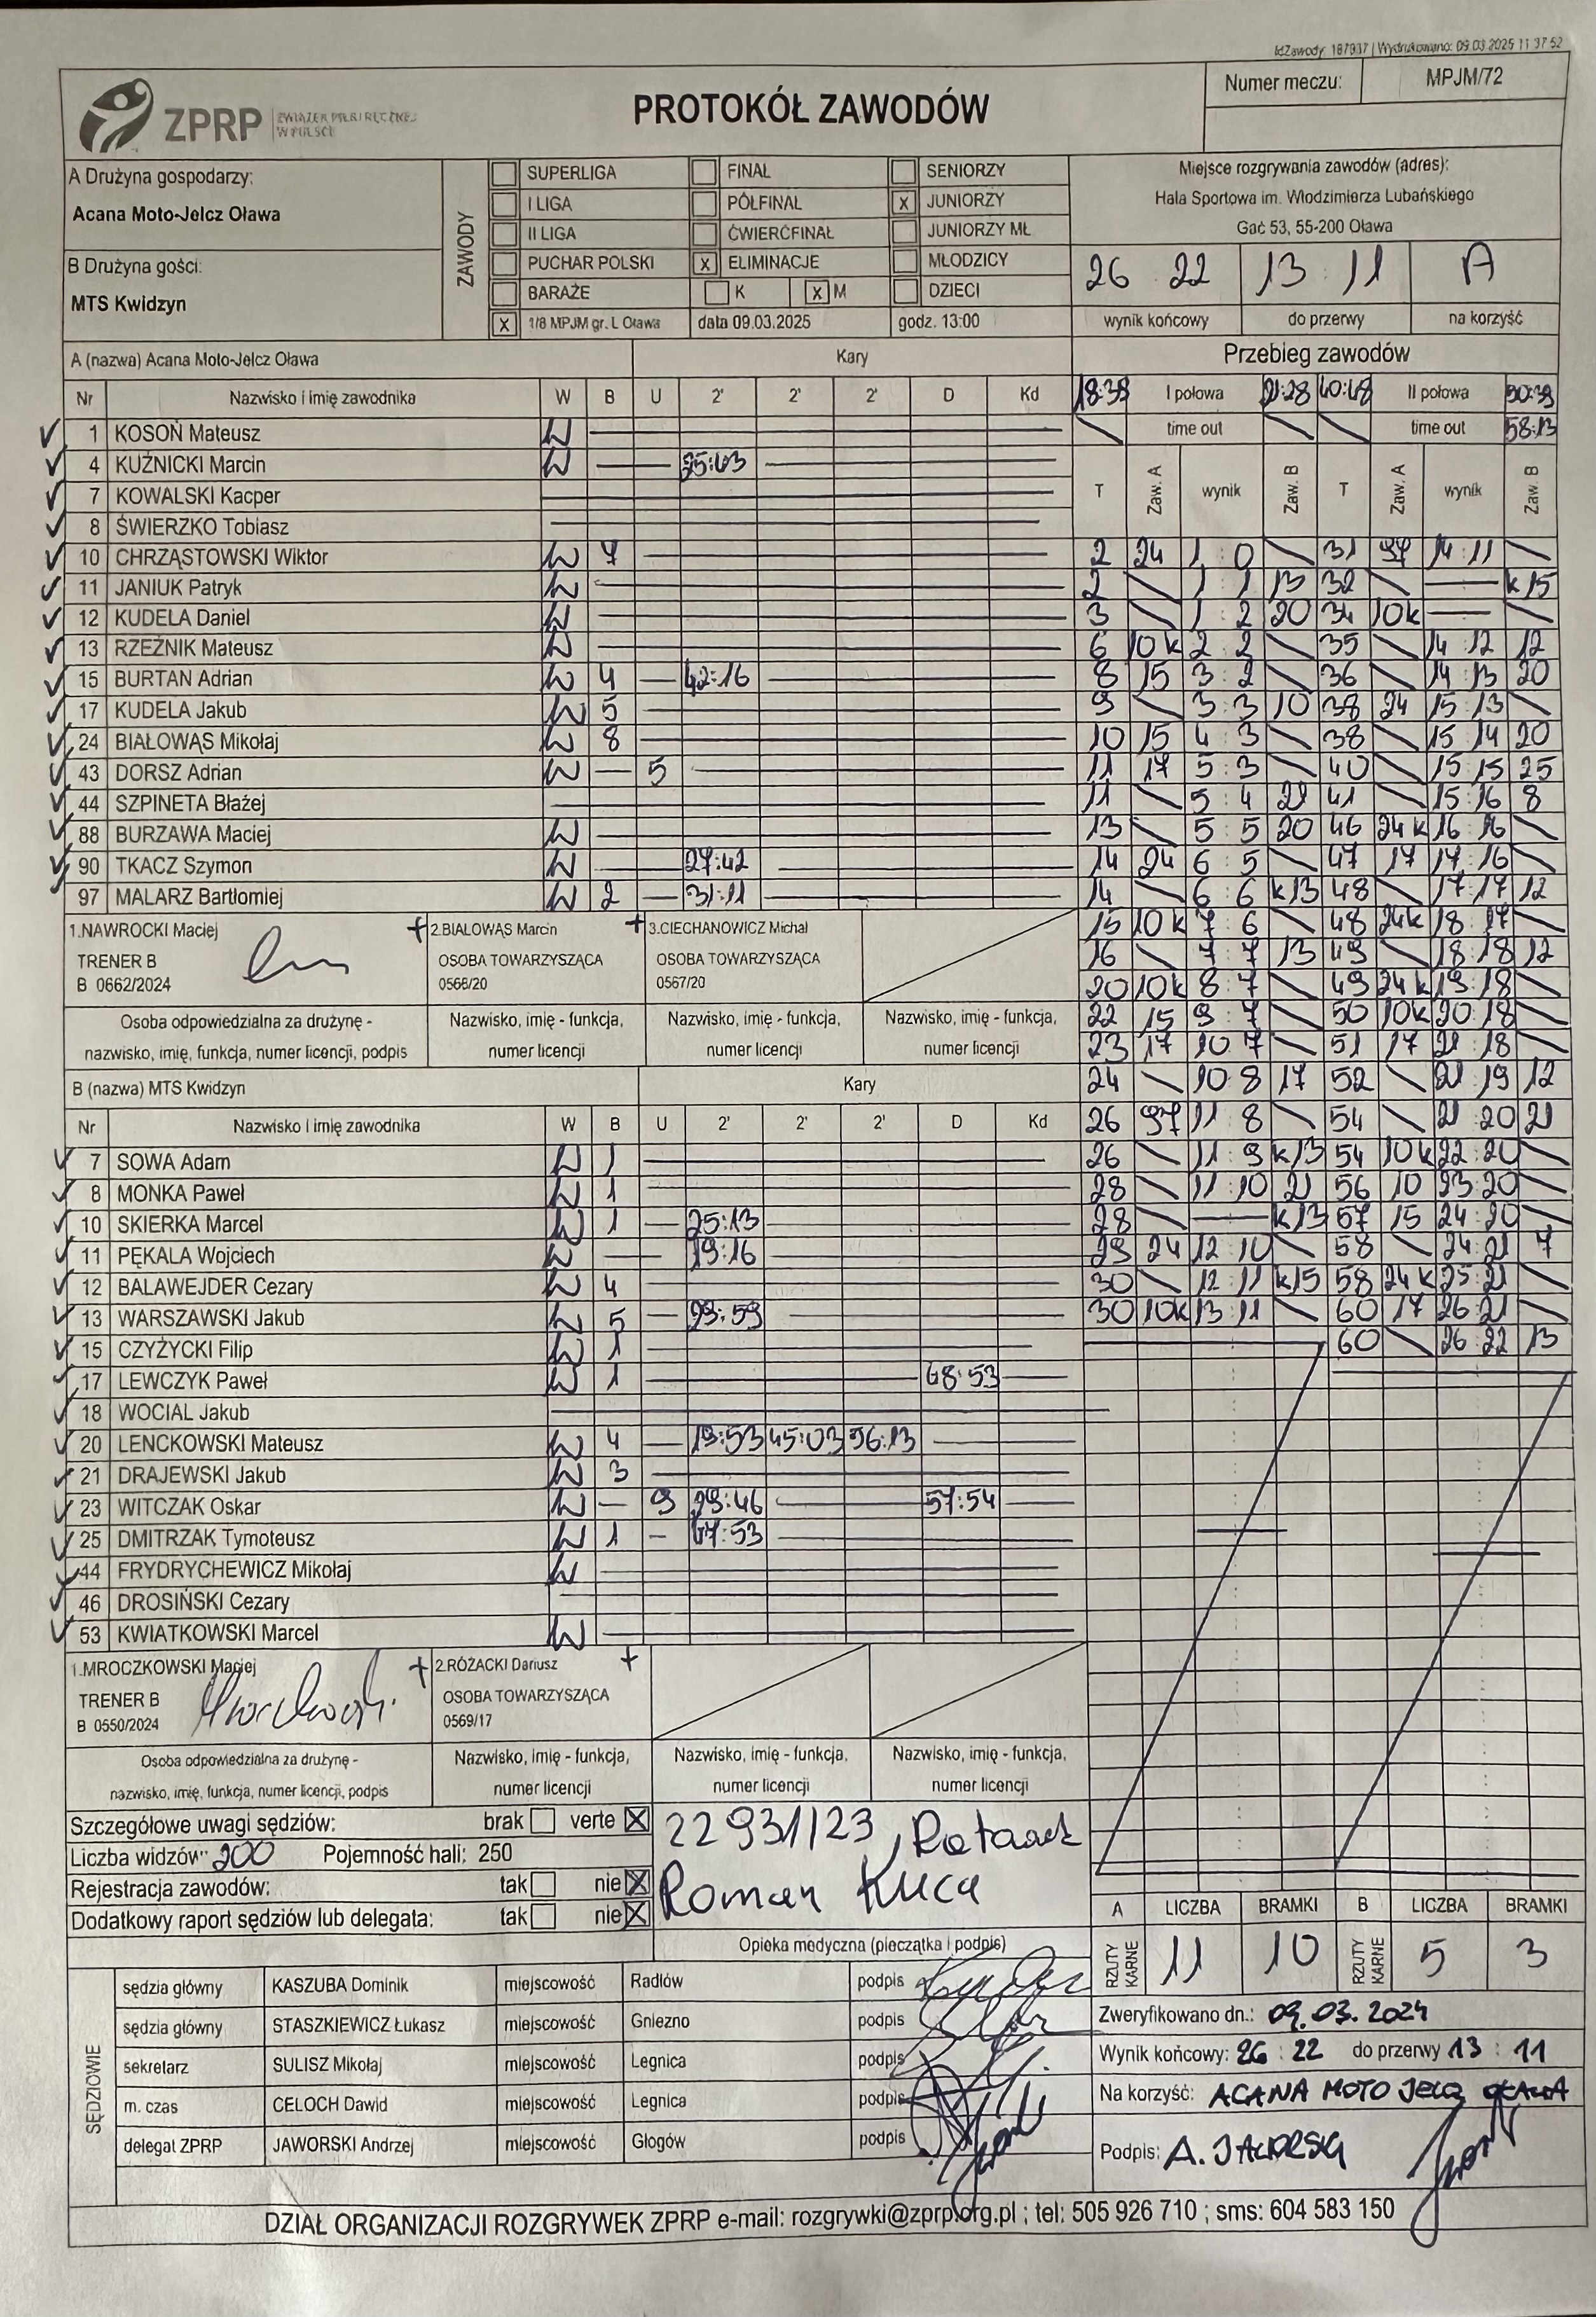 IdZawody: 187937 | Wydrukowano: 09.03.2025 11:37:52
ZPRP ZWIĄZEK PIŁKI RĘCZNEJ W POLSCE
PROTOKÓŁ ZAWODÓW
Numer meczu: MPJM/72
A Drużyna gospodarzy:
Acana Moto-Jelcz Oława
B Drużyna gości:
MTS Kwidzyn
ZAWODY
SUPERLIGA FINAŁ SENIORZY
I LIGA PÓŁFINAŁ X JUNIORZY
II LIGA ĆWIERĆFINAŁ JUNIORZY MŁ
PUCHAR POLSKI X ELIMINACJE MŁODZICY
BARAŻE K X M DZIECI
X 1/8 MPJM gr. L Oława data 09.03.2025 godz. 13:00
Miejsce rozgrywania zawodów (adres):
Hala Sportowa im. Włodzimierza Lubańskiego
Gać 53, 55-200 Oława
26 22 13 : 11 A
wynik końcowy do przerwy na korzyść
A (nazwa) Acana Moto-Jelcz Oława Kary
Nr Nazwisko i imię zawodnika W B U 2' 2' 2' D Kd
1 KOSOŃ Mateusz W
4 KUŹNICKI Marcin W
7 KOWALSKI Kacper
8 ŚWIERZKO Tobiasz
10 CHRZĄSTOWSKI Wiktor W 7
11 JANIUK Patryk W
12 KUDELA Daniel W
13 RZEŹNIK Mateusz W
15 BURTAN Adrian W 4 — 42:16
17 KUDELA Jakub W 5
24 BIAŁOWĄS Mikołaj W 8
43 DORSZ Adrian W — 5
44 SZPINETA Błażej
88 BURZAWA Maciej W
90 TKACZ Szymon W 27:42
97 MALARZ Bartłomiej W 2 — 31:11
1.NAWROCKI Maciej
TRENER B
B 0662/2024
+ 2.BIAŁOWĄS Marcin
OSOBA TOWARZYSZĄCA
0568/20
+ 3.CIECHANOWICZ Michał
OSOBA TOWARZYSZĄCA
0567/20
Osoba odpowiedzialna za drużynę -
nazwisko, imię, funkcja, numer licencji, podpis
Nazwisko, imię - funkcja,
numer licencji
Nazwisko, imię - funkcja,
numer licencji
Nazwisko, imię - funkcja,
numer licencji
B (nazwa) MTS Kwidzyn Kary
Nr Nazwisko i imię zawodnika W B U 2' 2' 2' D Kd
7 SOWA Adam W 1
8 MONKA Paweł W 1
10 SKIERKA Marcel W 1 — 25:13
11 PĘKALA Wojciech W — 19:16
12 BALAWEJDER Cezary W 4
13 WARSZAWSKI Jakub W 5 — 29:59
15 CZYŻYCKI Filip W 1
17 LEWCZYK Paweł W 1 48:53
18 WOCIAL Jakub
20 LENCKOWSKI Mateusz W 4 — 19:53 45:03 56:13
21 DRAJEWSKI Jakub W 3
23 WITCZAK Oskar W — 9 29:46 57:54
25 DMITRZAK Tymoteusz W 1 — 47:53
44 FRYDRYCHEWICZ Mikołaj W
46 DROSIŃSKI Cezary
53 KWIATKOWSKI Marcel W
1.MROCZKOWSKI Maciej
TRENER B
B 0550/2024
+ 2.RÓŻACKI Dariusz +
OSOBA TOWARZYSZĄCA
0569/17
Osoba odpowiedzialna za drużynę -
nazwisko, imię, funkcja, numer licencji, podpis
Nazwisko, imię - funkcja,
numer licencji
Nazwisko, imię - funkcja,
numer licencji
Nazwisko, imię - funkcja,
numer licencji
Przebieg zawodów
18:38 I połowa 21:28 40:48 II połowa 50:39
time out time out 58:13
T Zaw. A wynik Zaw. B T Zaw. A wynik Zaw. B
2 24 1 : 0 31 97 14 : 11
2 1 : 1 13 32 — k15
3 1 : 2 20 34 10k —
6 10k 2 : 2 35 14 : 12 12
8 15 3 : 2 36 14 : 13 20
9 3 : 3 10 38 24 15 : 13
10 15 4 : 3 38 15 : 14 20
11 17 5 : 3 40 15 : 15 25
11 5 : 4 21 41 15 : 16 8
13 5 : 5 20 46 24k 16 : 16
14 24 6 : 5 47 17 17 : 16
14 6 : 6 k13 48 17 : 17 12
15 10k 7 : 6 48 24k 18 : 17
16 7 : 7 13 49 18 : 18 12
20 10k 8 : 7 49 24k 19 : 18
22 15 9 : 7 50 10k 20 : 18
23 17 10 : 7 51 17 21 : 18
24 10 : 8 17 52 21 : 19 12
26 97 11 : 8 54 21 : 20 21
26 11 : 9 k13 54 10k 22 : 20
28 11 : 10 21 56 10 23 : 20
28 — k13 57 15 24 : 20
29 24 12 : 10 58 24 : 21 7
30 12 : 11 k15 58 24k 25 : 21
30 10k 13 : 11 60 17 26 : 21
60 26 : 22 13
Szczegółowe uwagi sędziów: brak verte X
Liczba widzów: 200 Pojemność hali: 250
Rejestracja zawodów: tak nie X
Dodatkowy raport sędziów lub delegata: tak nie X
22931/23
Roman Kuca
Opieka medyczna (pieczątka i podpis)
A LICZBA BRAMKI B LICZBA BRAMKI
RZUTY KARNE 11 10 RZUTY KARNE 5 3
SĘDZIOWIE
sędzia główny KASZUBA Dominik miejscowość Radłów podpis
sędzia główny STASZKIEWICZ Łukasz miejscowość Gniezno podpis
sekretarz SULISZ Mikołaj miejscowość Legnica podpis
m. czas CELOCH Dawid miejscowość Legnica podpis
delegat ZPRP JAWORSKI Andrzej miejscowość Głogów podpis
Zweryfikowano dn.: 09.03.2024
Wynik końcowy: 26 : 22 do przerwy 13 : 11
Na korzyść: ACANA MOTO JELCZ OŁAWA
Podpis: A. JAWORSKI
DZIAŁ ORGANIZACJI ROZGRYWEK ZPRP e-mail: rozgrywki@zprp.org.pl ; tel: 505 926 710 ; sms: 604 583 150